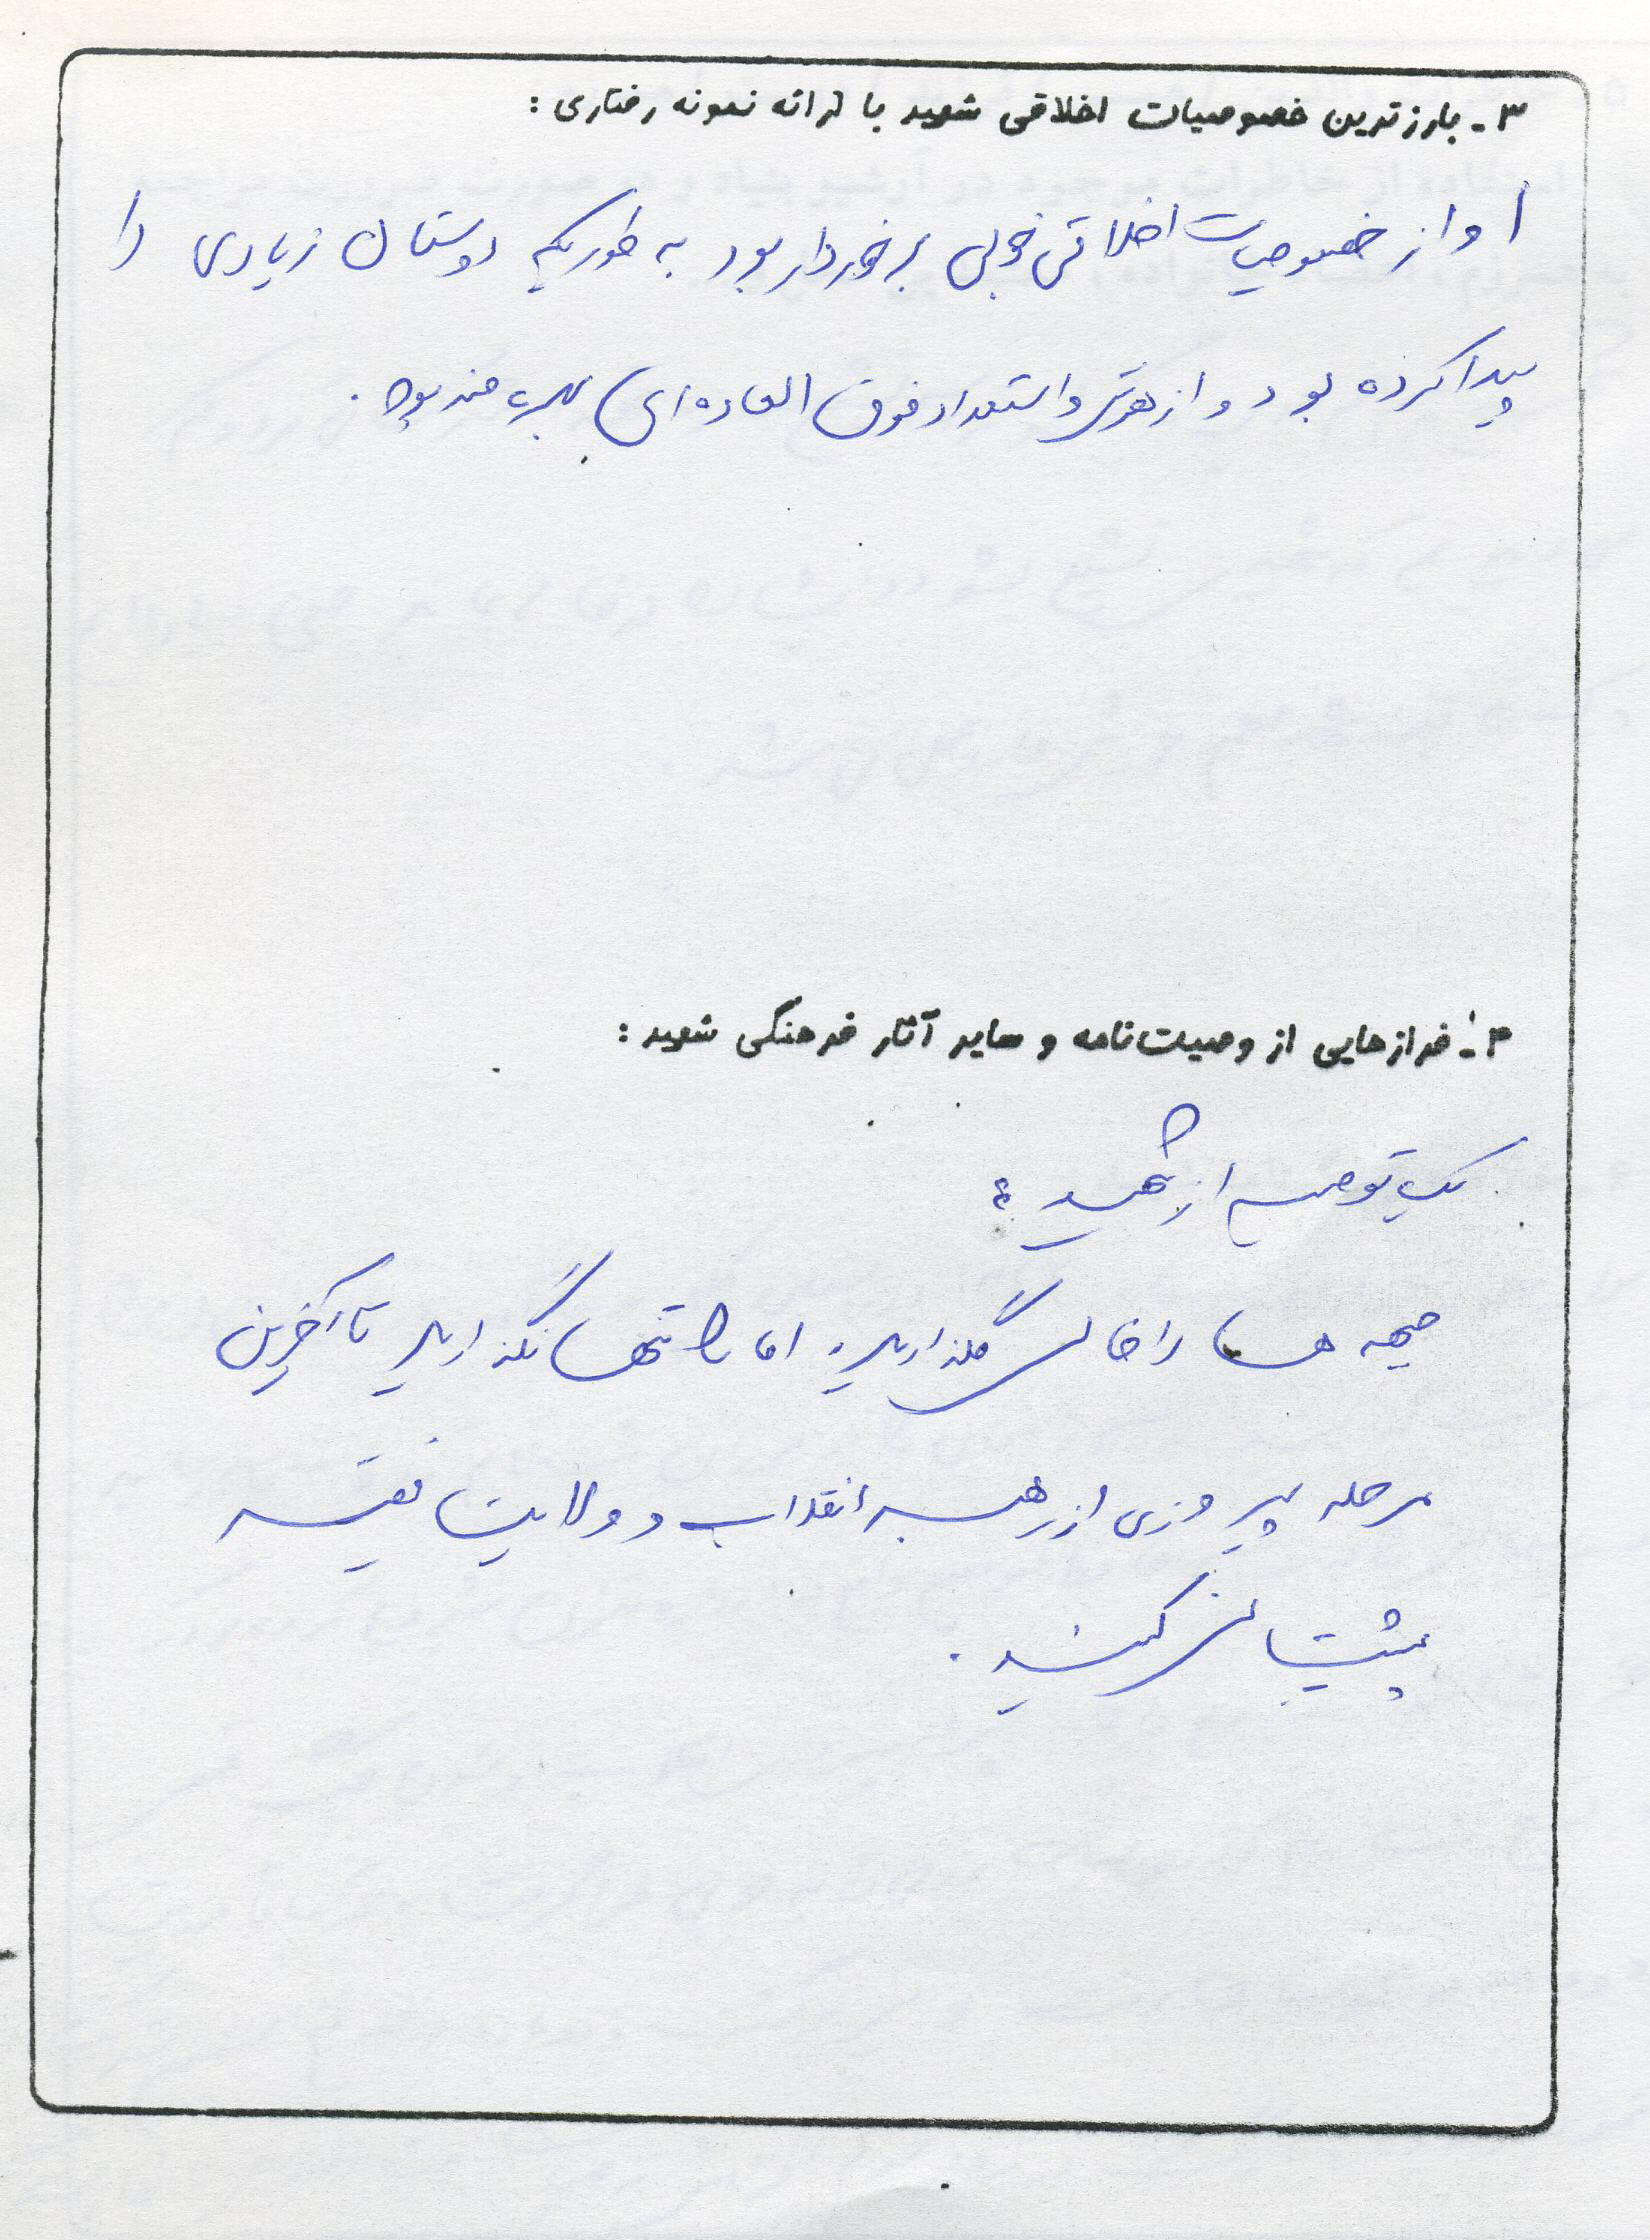 ۳ـ بارزترین خصوصیات اخلاقی شهید با ارائه نمونه رفتاری :
او از خصوصیات اخلاقی خوبی برخوردار بود به طوریکه دوستان زیادی را
پیدا کرده بود و از هوش و استعداد فوق العاده ای بهره مند بود .
۴ـ فرازهایی از وصیت‌نامه و سایر آثار فرهنگی شهید :
یک توصیه از شهید :
جبهه ها را خالی نگذارید امام را تنها نگذارید تا آخرین
مرحله پیروزی از رهبر انقلاب و ولایت فقیه
پشتیبانی کنید .